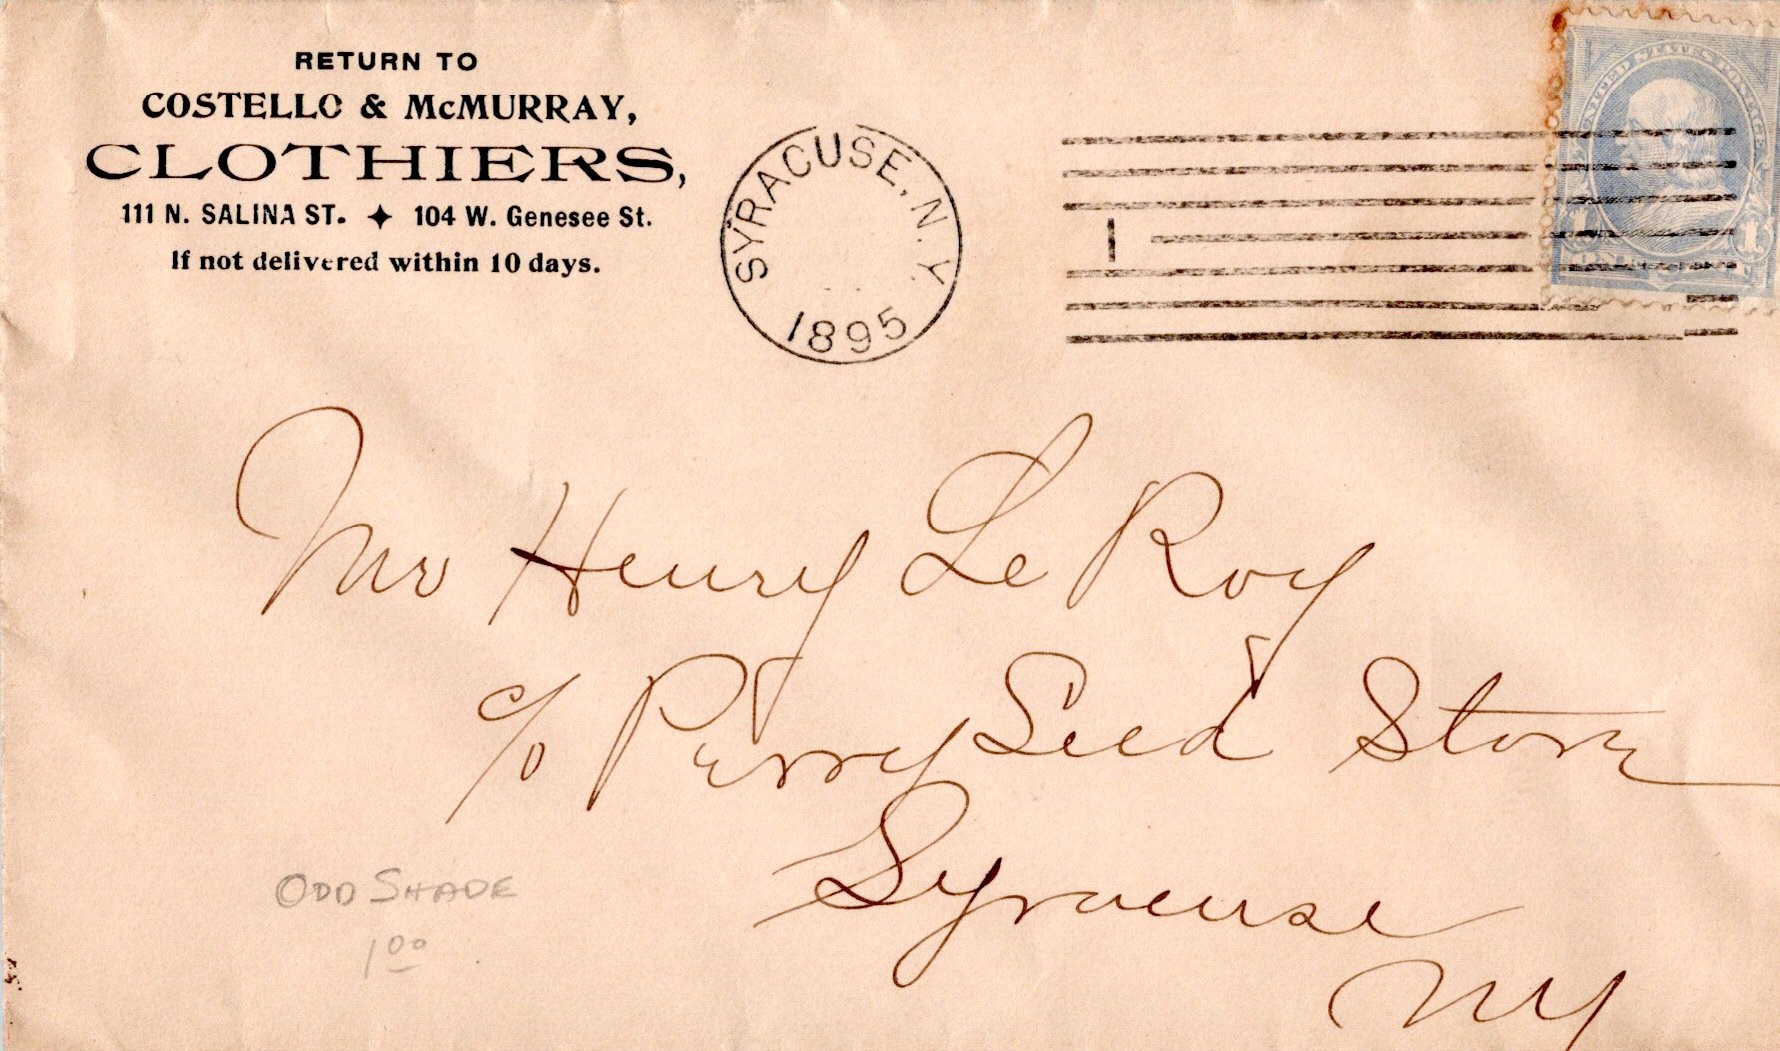 RETURN TO
COSTELLO & McMURRAY,
CLOTHIERS,
111 N. SALINA ST. ✦ 104 W. Genesee St.
If not delivered within 10 days.
SYRACUSE, N.Y.
1895
1
UNITED STATES POSTAGE
1 1
ONE CENT
Mr Henry Le Roy
c/o Perry Seed Store
Syracuse
NY
ODD SHADE
1 00